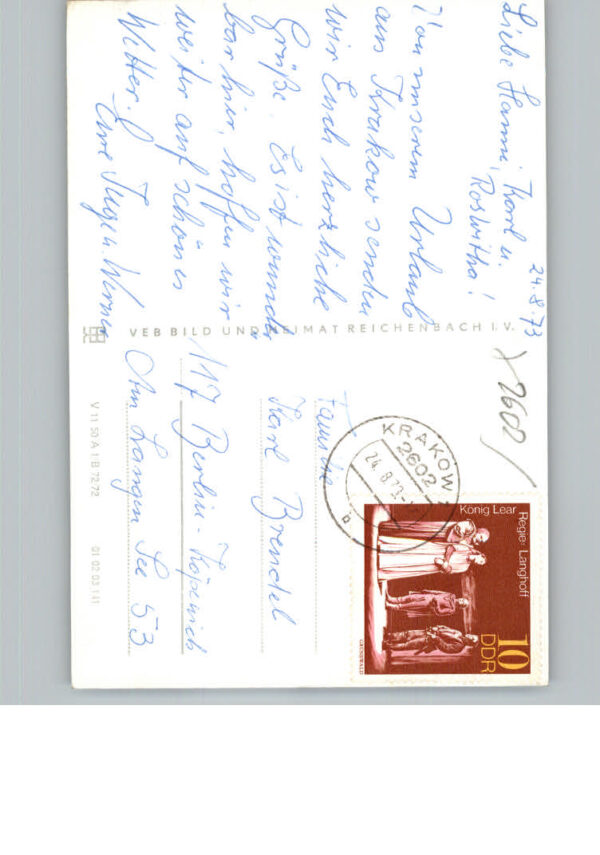 24.8.73
Liebe Hanni, Karl u.
Roswitha!
Von unserem Urlaub
aus Krakow senden
wir Euch herzliche
Grüße. Es ist wunder
bar hier, hoffen wir
weiter auf schönes
Wetter.
Eure Inge u. Werner
VEB BILD UND HEIMAT REICHENBACH I. V.
V 11 50 A 1/B 72/72
01 02 03 141
2602
KRAKOW
2602
24.8.73
b
König Lear
Regie: Langhoff
10
DDR
GRÜNEWALD
Familie
Karl Brendel
117 Berlin-Köpenick
Am Langen See 53